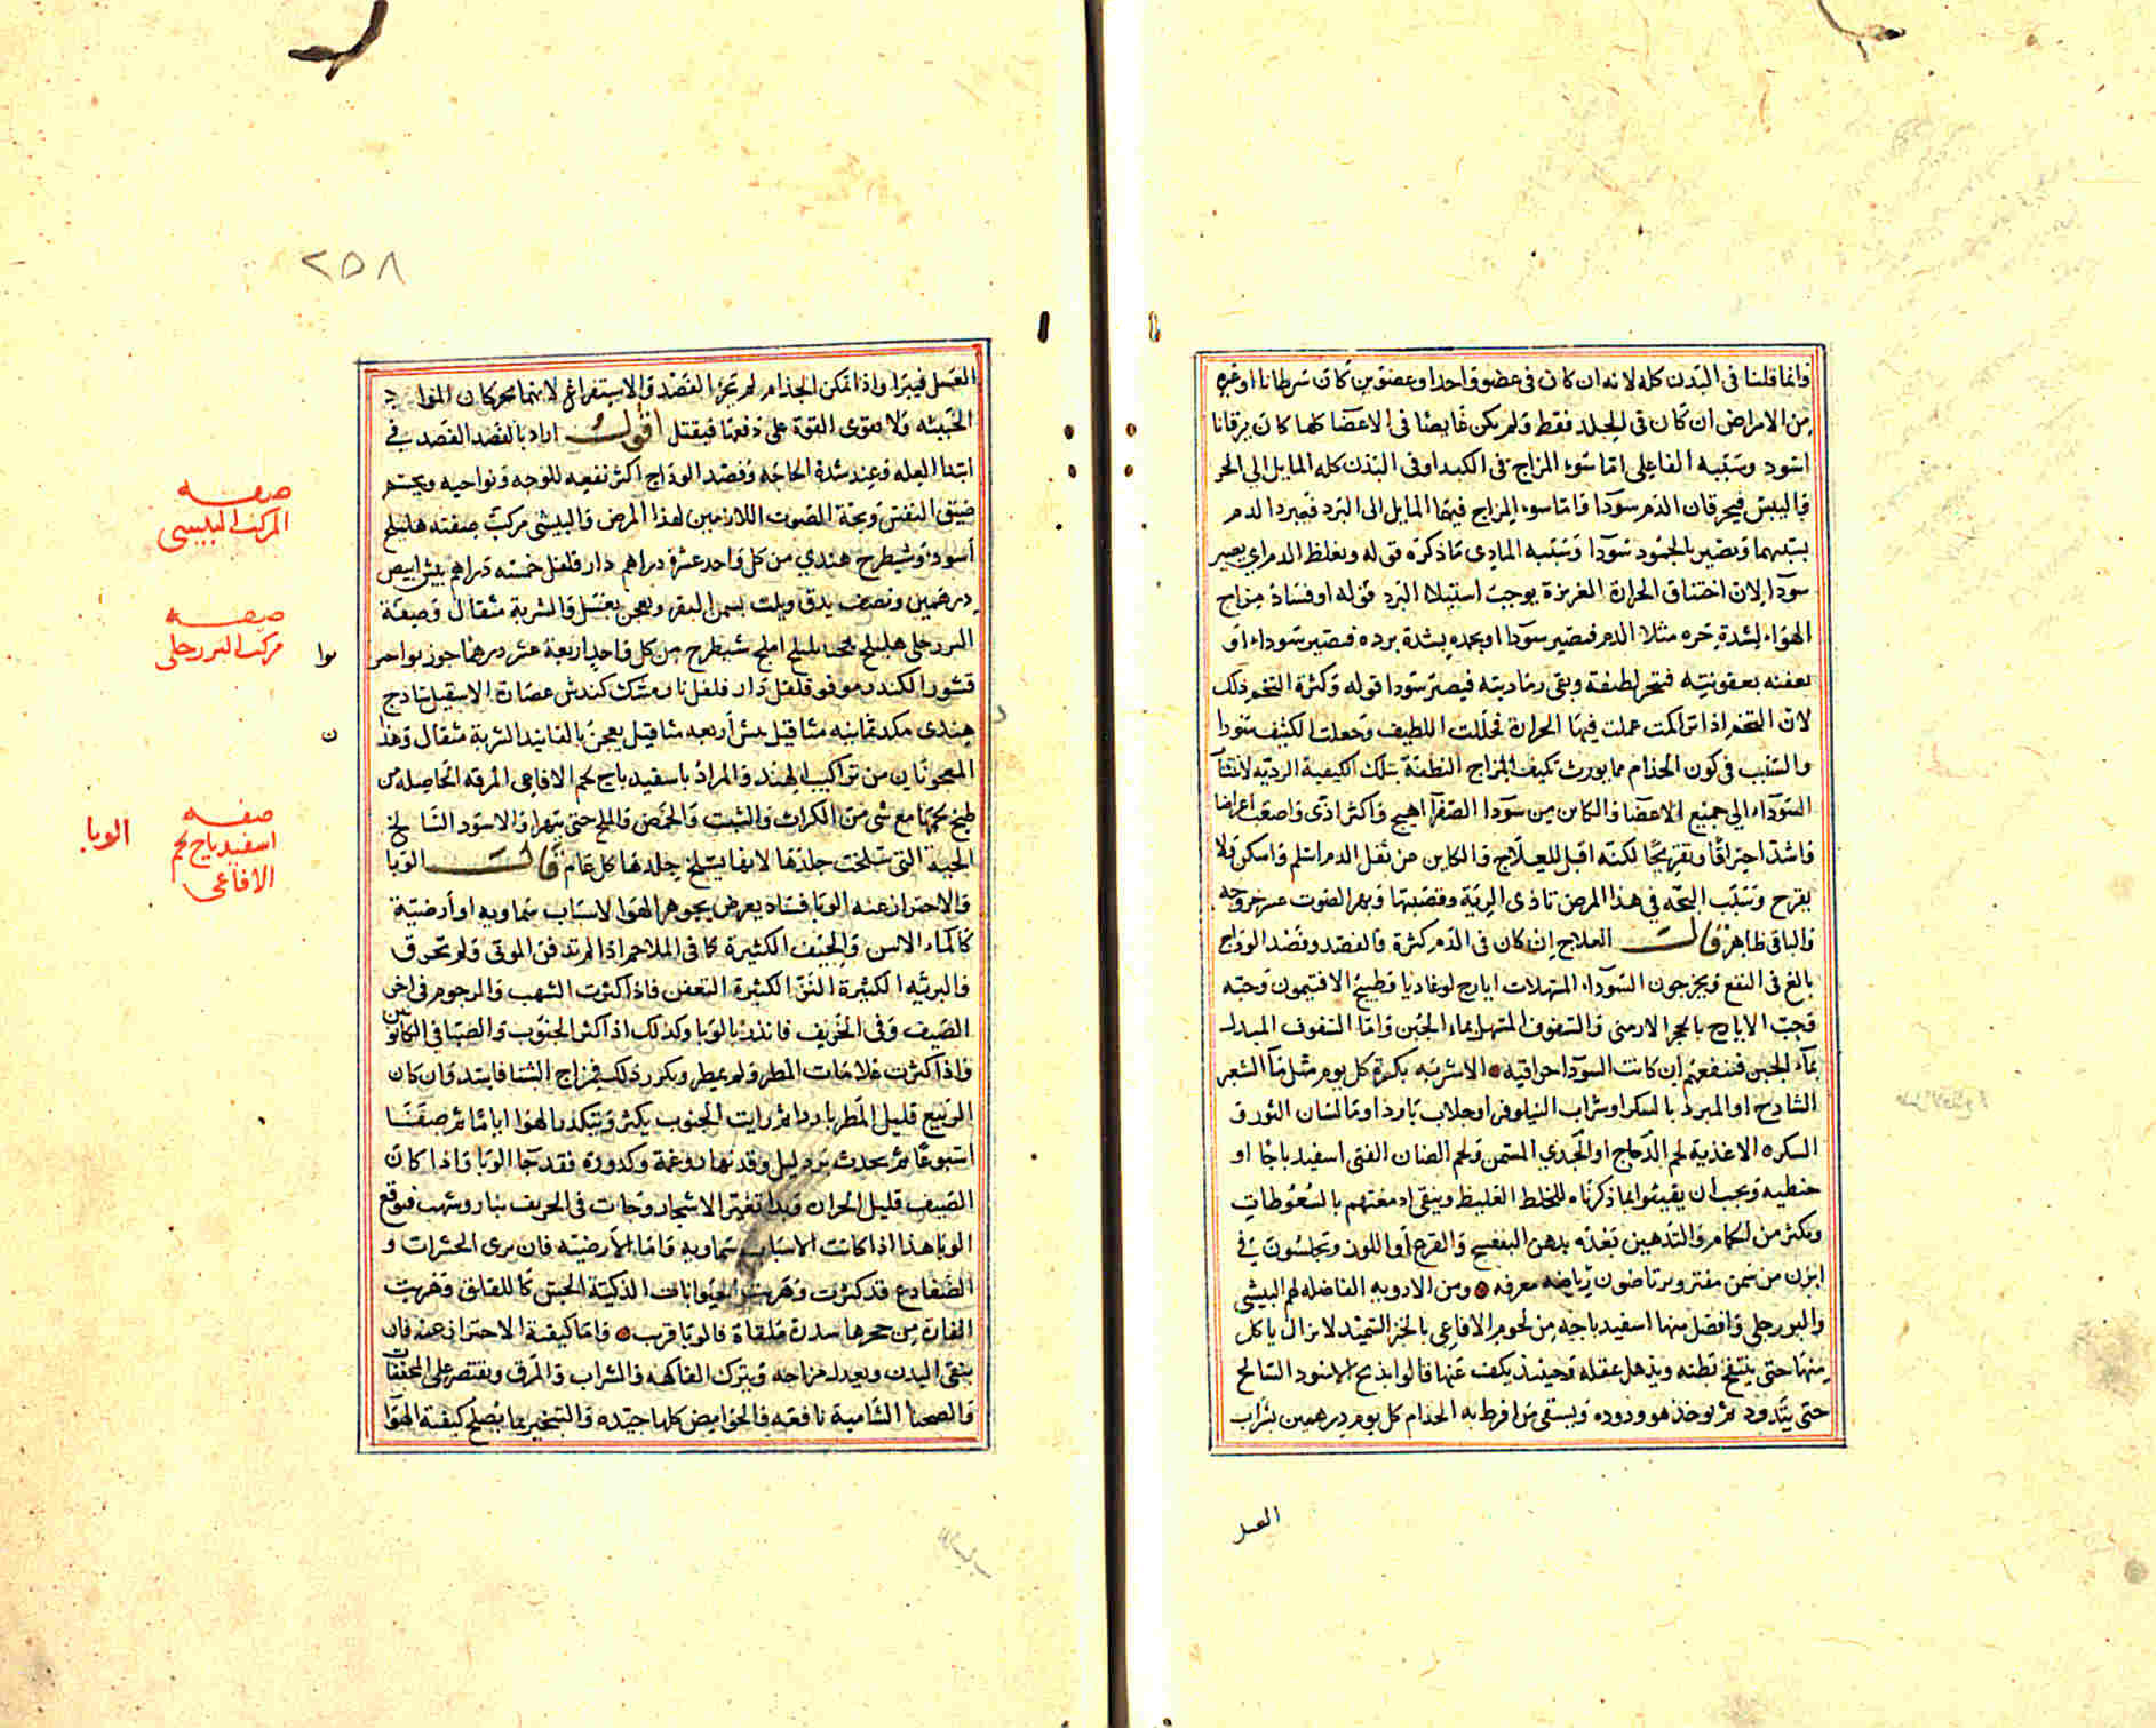 وانما قلنا في البدن كله لانه ان كان في عضو واحد او عضوين كان سرطانا او غيره
من الامراض ان كان في الجلد فقط ولم يكن غايصا في الاعضا كلها كان يرقانا
اسود وسببه الفاعلي اما سوء المزاج في الكبد او في البدن كله المايل الي الحر
واليبس فيحرقان الدم سودا واما سوء المزاج فيهما المايل الى البرد فيبرد الدم
ويصير بالجمود سودا وسببه المادي ما ذكره قوله ويغلظ الدم اي يصير
سودا لان اختناق الحرارة الغريزة يوجب استيلا البرد قوله او فساد مزاج
الهواء لشدة حره مثلا الدم فيصير سودا او بجمده بشدة برده فيصير سوداء او
يعفنه بعفونيته فتحر لطيفه ويبقى رماديته فيصير سودا قوله وكثرة التخم ذلك
لان التخم اذا تراكمت عملت فيها الحرارة فحللت اللطيف وجعلت الكثيف سودا
والسبب في كون الجذام مما يورث تكيف المزاج النطفة بتلك الكيفية الردية لانتشا
السوداء الي جميع الاعضا والكاين من سودا الصفرا اهيج واكثر اذى واصعب اعراضا
واشد احتراقا وتقريحا لكنه اقبل للعلاج والكاين من ثفل الدم اسلم واسكن ولا
يقرح وسبب البحه في هذا المرض تاذى الرية وقصبتها وبهر الصوت عسر خروجه
والباقي ظاهر قالـــ العلاج ان كان في الدم كثرة فالفصد وفصد الوداج
بالغ في النفع ويخرجون السوداء المسهلات ايارج لوغاديا وطبيخ الافتيمون وحبه
وحب الايارج بالحجر الارمني والسفوف المسهل بماء الجبن واما السفوف المبدل
بماء الجبن فينفعهم ان كانت السودا حراقية الاشربه بكرة كل يوم مثل ماء الشعير
الساذج او المبرد بالسكر او شراب النيلوفر او جلاب بارد او ماء لسان الثور و
السكره الاغذية لحم الدجاج او الجدي المسمن ولحم الضان الفتى اسفيدباجا او
حنطيه ويجب ان يقيئوا بما ذكرناه للخلط الغليظ وينقى ادمغتهم بالسعوطات
ويكثر من الحمام والتدهين بعده بدهن البنفسج والقرع او اللوز ويجلسون في
ابزن من سمن مفتر ويرتاضون رياضه معرقه ومن الادويه الفاضله لهم البيشي
والبورجلي وافضل منها اسفيدباجه من لحوم الافاعي بالخبز السميد لا يزال ياكل
منها حتى ينتفخ بطنه ويذهل عقله وحينئذ يكف عنها قالوا يذبح الاسود السالح
حتى يتدود ثم يوخذ هو ودوده ويسقى من افرط به الجذام كل يوم درهمين بشراب
العسل
٢٥٨
العسل فيبرا واذا تمكن الجذام لم تجز الفصد والاستفراغ لانهما يحركان المواد
الخبيثه ولا يقوى القوة على دفعها فيقتل اقولـــ اراد بالفصد الفصد في
ابتدا العله وعند شدة الحاجه وفصد الوداج اكثر نفعه للوجه ونواحيه ويحسم
ضيق النفس وبحة الصوت اللازمين لهذا المرض والبيشي مركب صفته هليلج
اسود وشيطرج هندي من كل واحد عشرة دراهم دارفلفل خمسه دراهم بيش ابيض
درهمين ونصف يدق ويلت بسمن البقر ويعجن بعسل والشربة مثقال وصفة
البزرجلي هليلج بليلج املج شيطرج من كل واحد اربعة عشر درهما جوز بوا
قشور الكندر فلفل دارفلفل كندش عصارة الاسقيل ساذج
هندي ثمانيه مثاقيل بيش اربعه مثاقيل يعجن بالفانيد الشربة مثقال وهذا
المعجونان من تراكيب الهند والمراد باسفيدباج لحم الافاعي المرقه الحاصله من
طبخ لحمها مع شي من الكراث والشبت والحمص والملح حتى يتهرا والاسود السالخ
الحية التي سلخت جلدها لانها يسلخ جلدها كل عام قالـــ الوبا
والاحتراز عنه الوبا فساد يعرض بجوهر الهوا لاسباب سماويه او أرضية
كالماء الاسن والجيف الكثيرة كما في الملاحم اذا لم تدفن الموتى ولم تحرق
والتربه الكثيرة النز الكثيرة التعفن فاذا كثرت الشهب والرجوم في اخر
الصيف وفي الخريف فانذر بالوبا وكذلك اذا كثر الجنوب والصبا في الكانونين
واذا كثرت علامات المطر ولم يمطر ويكرر ذلك فمزاج الشتا فاسد وان كان
الربيع قليل المطر باردا ثم رايت الجنوب يكثر ويتكدر الهوا اياما ثم صفا
اسبوعا ثم يحدث برد ليل وقد نهار وغمة وكدورة فقد جا الوبا واذا كان
الصيف قليل الحرارة وبدا تغير الاشجار وجات في الخريف نار وشهب فتوقع
الوبا هذا اذا كانت الاسباب سماويه واما الأرضيه فان يرى الحشرات و
الضفادع قد كثرت وهربت الحيوانات الذكية الحس كاللقالق وهربت
الفارة من جحرها سدرة ملقاة فالوبا قريب واما كيفية الاحتراز عنه فان
ينقى البدن ويعدل مزاجه ويترك الفاكهه والشراب والمرق ويقتصر على المجففات
والصحنا الشامية نافعه والحوامض كلها جيده والتبخير بما يصلح كيفية الهوا
صفـــه
المركب البيشي
صفـــه
مركب البزرجلي
بوا
ن
صفـــه
اسفيدباج لحم
الافاعي
الوبا